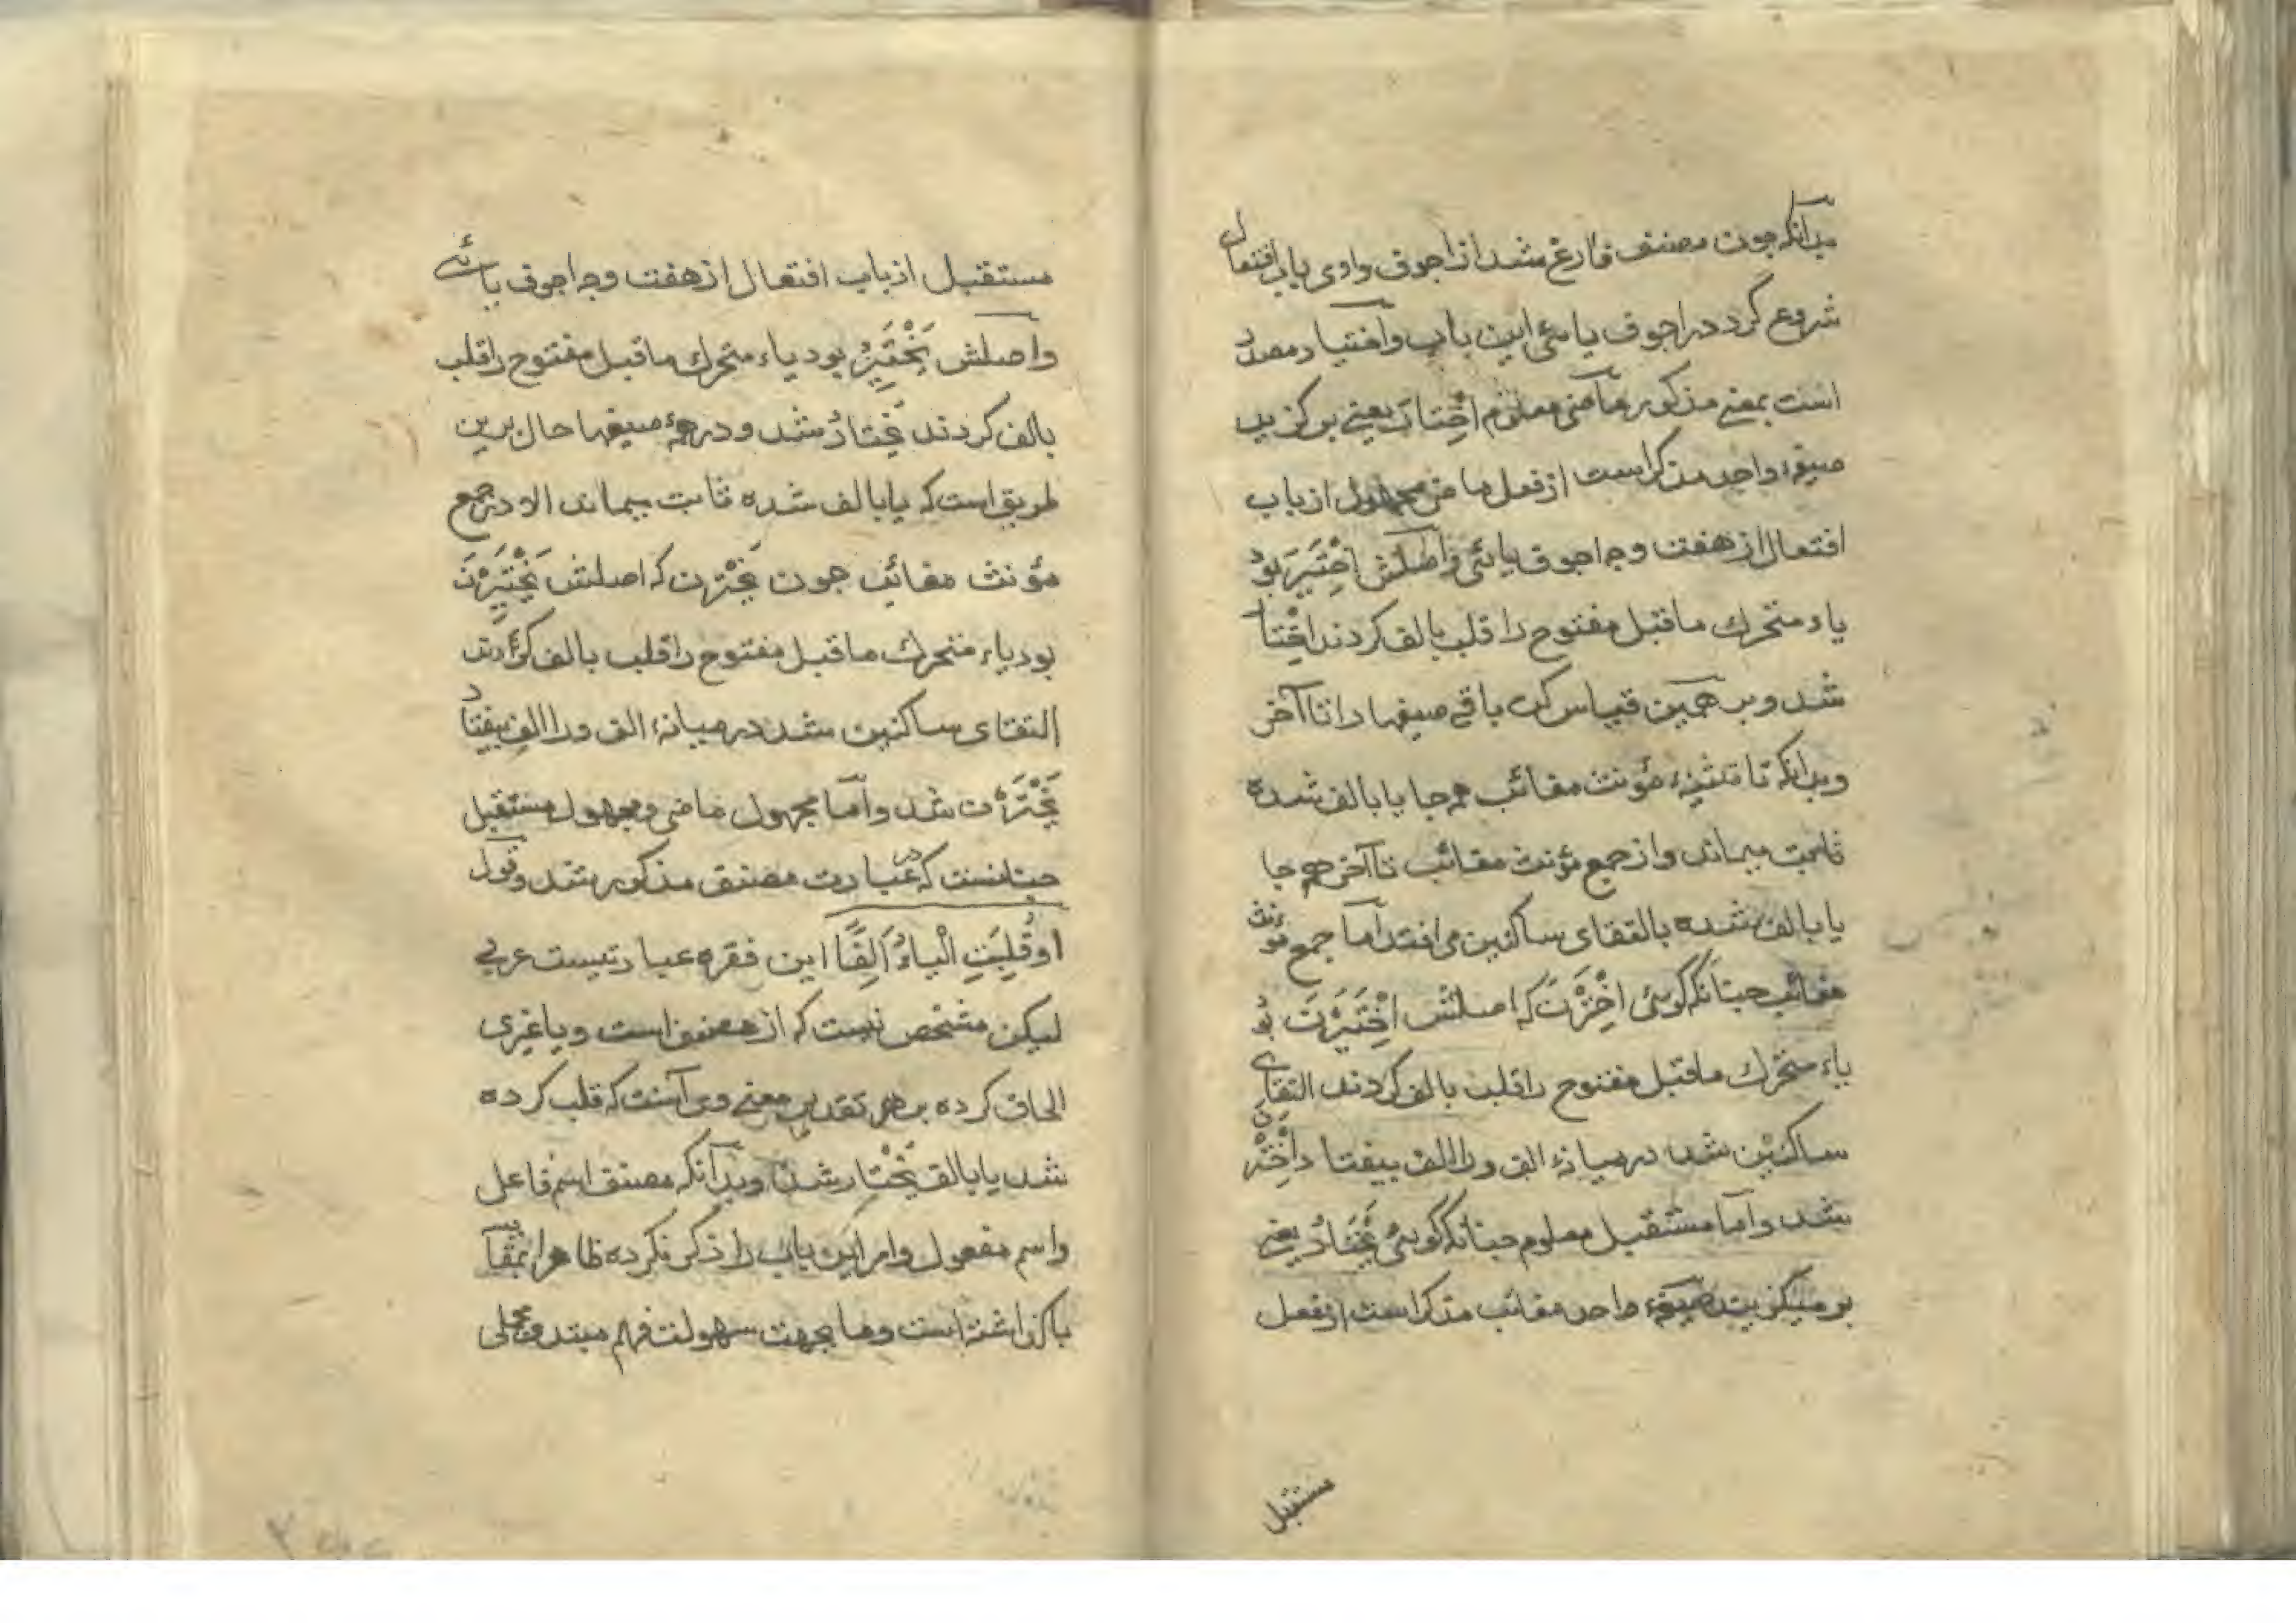 بدآنکه جون مصنف فارغ شد از اجوف واوی باب افتعال
شروع کرد در اجوف یائی این باب واختیار مصدر
است بمعنے مذکور ماضی معلوم اخْتارَ یعنے برگزید
صیغهٔ واحد مذکر است از فعل ماضی از باب
افتعال از هفت وجه اجوف یائی واصلش اخْتَیَرَ بود
یاء متحرك ماقبل مفتوح را قلب بالف کردند اخْتا
شد و بر همین قیاس کن باقے صیغها را تا آخر
وبدانکه تا تثنیهٔ مؤنث مغائب همه جا یا بالف شده
ثابت میماند واز جمع مؤنث مغائب تا آخر همه جا
یا بالف شده بالتقای ساکنین می افتد اما جمع مؤنث
مغائب جنانکه گویئ اخْتَرْنَ که اصلش اخْتَیَرْنَ بود
یاء متحرك ماقبل مفتوح را قلب بالف کردند التقای
ساکنین شد در میانهٔ الف ورا الف بیفتاد اخْتَرْنَ
شد وآما مستقبل معلوم جنانکه گویئ یَخْتَارُ یعنے
برمیگزیند صیغهٔ واحد مغائب مذکر است از فعل
مستقبل
مستقبل از باب افتعال از هفت وجه اجوف یائے
واصلش یَخْتَیِرُ بود یاء متحرك ماقبل مفتوح را قلب
بالف کردند یَختارُ شد ودر همهٔ صیغها حال برین
طریق است که یا بالف شده ثابت میماند الا در جمع
مؤنث مغائب جون یَخْتَرْن که اصلش یَخْتَیِرْنَ
بود یاء متحرك ماقبل مفتوح را قلب بالف کردند
التقای ساکنین شد در میانهٔ الف ورا الف بیفتاد
یَخْتَرْن شد وآما مجهول ماضی ومجهول مستقبل
جنانست که در عبارت مصنف مذکور شد وقول
اوقُلِبَتِ الْیاءُ اَلِفًا این فقره عبارتیست عربے
لیکن مشخص نیست که از مصنف است ویا غیری
الحاق کرده بر هر تقدیر معنے وی آنست که قلب کرده
شد یا بالف یُخْتار شد وبدآنکه مصنف اسم فاعل
واسم مفعول وامر این باب را ذکر نکرده ظاهرا
باگذاشته است وما بجهت سهولت فهم مبتد